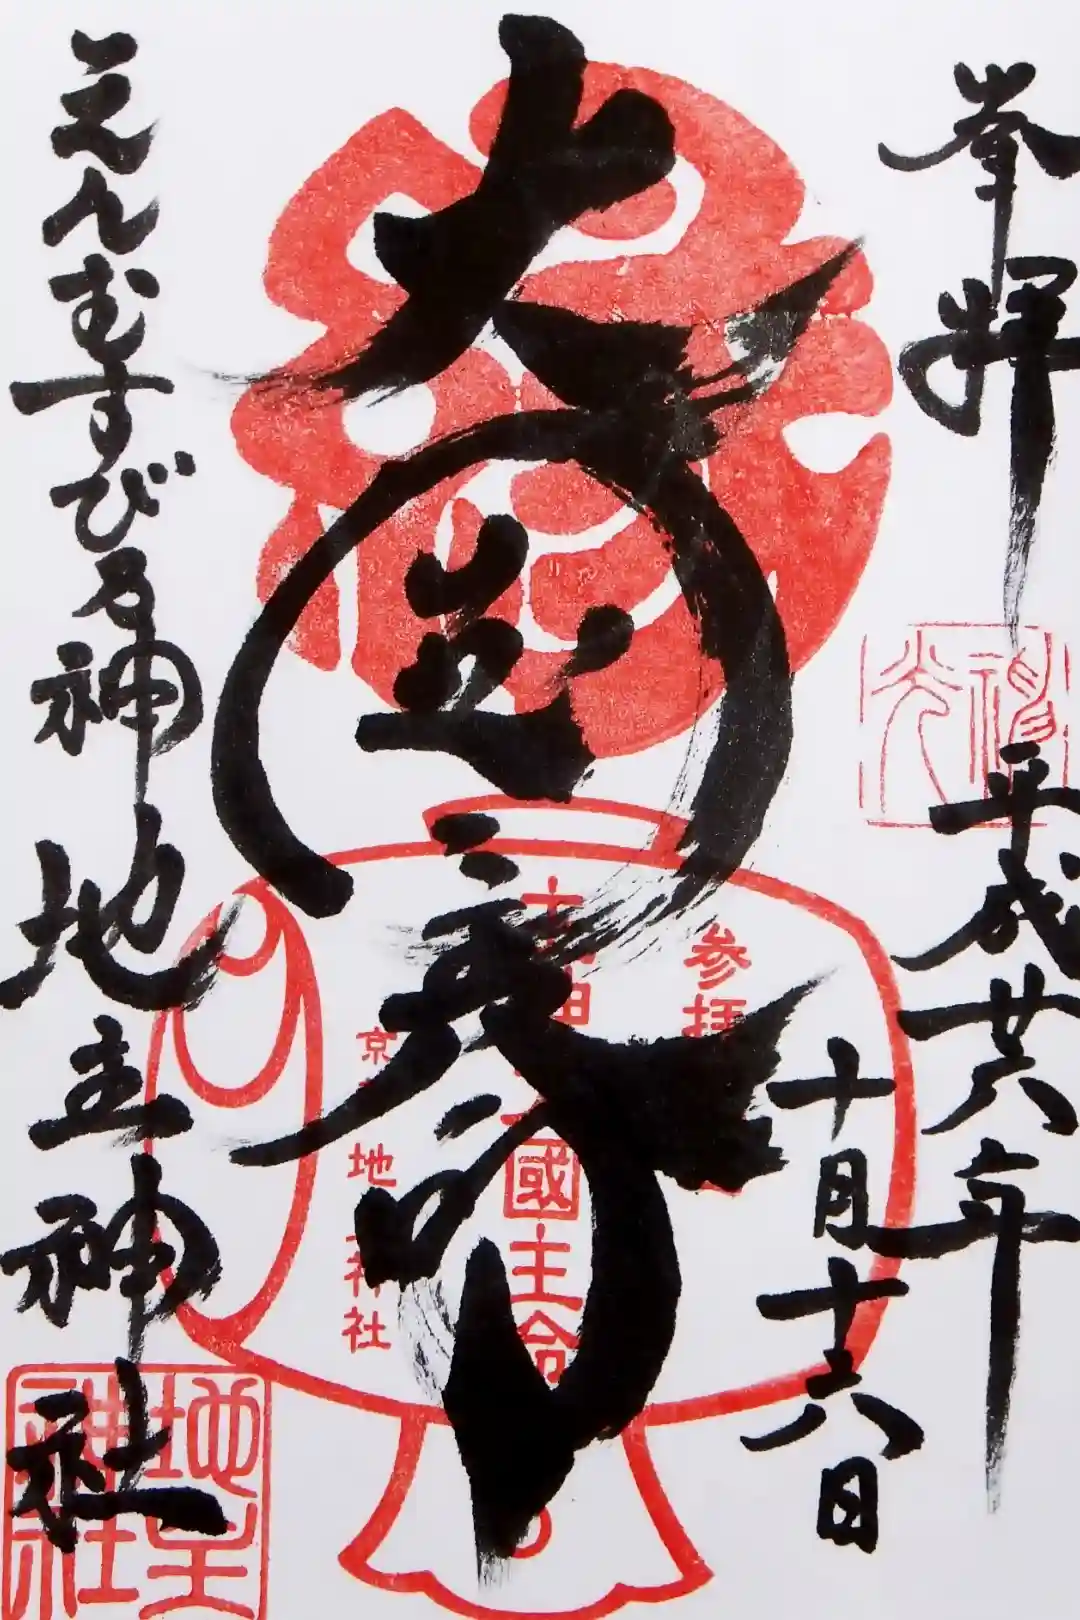 奉拝
平成廿六年
十月十六日
大国主命
えんむすびの神
地主神社
参拝
大国主命
京都
地主神社
地主神社